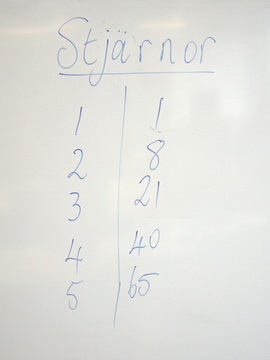 Stjärnor
1 1
2 8
3 21
4 40
5 65